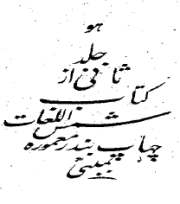 هو
جلد
ثانی از
کتاب
شمس اللغات
چهاپ بندر معموره
بمبئی